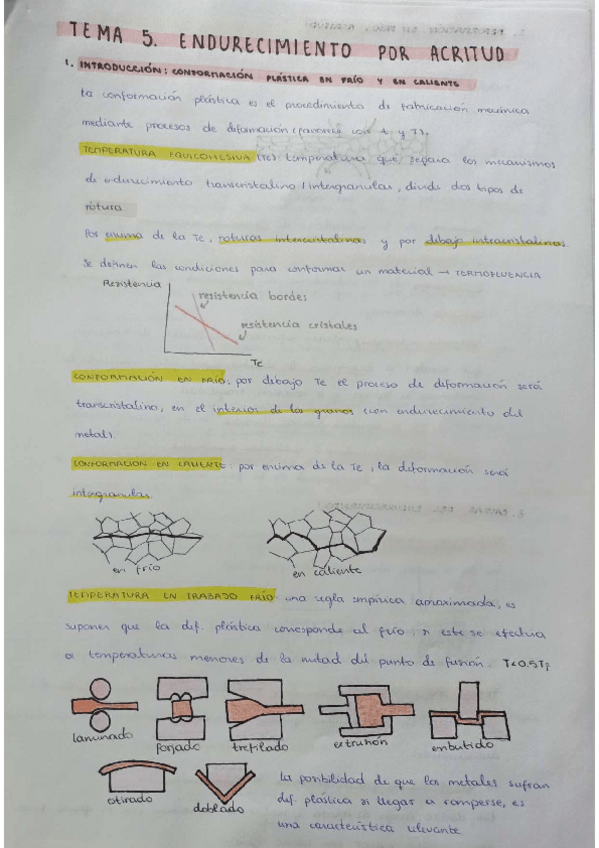 TEMA 5. ENDURECIMIENTO POR ACRITUD
1. INTRODUCCIÓN: CONFORMACIÓN PLÁSTICA EN FRÍO Y EN CALIENTE
La conformación plástica es el procedimiento de fabricación mecánica
mediante procesos de deformación (favorece con t y T).
TEMPERATURA EQUICOHESIVA (Te): temperatura que separa los mecanismos
de endurecimiento transcristalino / intergranular, divide dos tipos de
rotura.
Por encima de la Te, roturas intercristalinas y por debajo intracristalinas.
Se definen las condiciones para conformar un material → TERMOFLUENCIA
Resistencia
resistencia bordes
resistencia cristales
Te
CONFORMACIÓN EN FRÍO: por debajo Te el proceso de deformación será
transcristalino, en el interior de los granos (con endurecimiento del
metal).
CONFORMACIÓN EN CALIENTE: por encima de la Te, la deformación será
intergranular.
en frío
en caliente
TEMPERATURA EN TRABAJO FRÍO: una regla empírica aproximada, es
suponer que la def. plástica corresponde al frío, si este se efectúa
a temperaturas menores de la mitad del punto de fusión. T<0.5Tf
laminado
forjado
trefilado
extrusión
embutido
otirado
doblado
La posibilidad de que los metales sufran
def. plástica sin llegar a romperse, es
una característica relevante